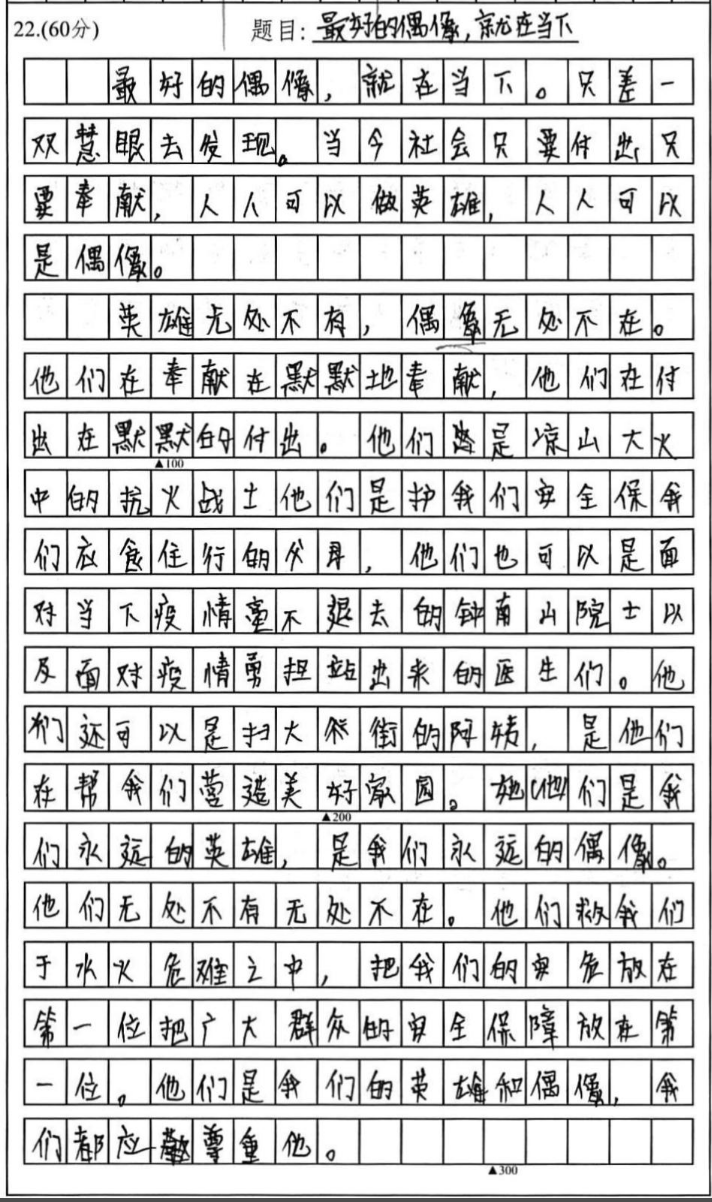 22.(60分) 题目: 最好的偶像,就在当下
最好的偶像,就在当下。只差一
双慧眼去发现。当今社会只要付出只
要奉献,人人可以做英雄,人人可以
是偶像。
英雄无处不有,偶像无处不在。
他们在奉献在默默地奉献,他们在付
出在默默的付出。他们是凉山大火
中的抗火战士他们是护我们安全保我
们应食住行的父母,他们也可以是面
对当下疫情毫不退去的钟南山院士以
及面对疫情勇担站出来的医生们。他
们还可以是扫大街的阿姨,是他们
在帮我们营造美好家园。她(他)们是我
▲100
▲200
们永远的英雄,是我们永远的偶像。
他们无处不有无处不在。他们救我们
于水火危难之中,把我们的安危放在
第一位把广大群众的安全保障放在第
一位。他们是我们的英雄和偶像,我
们都应敬尊重他。
▲300